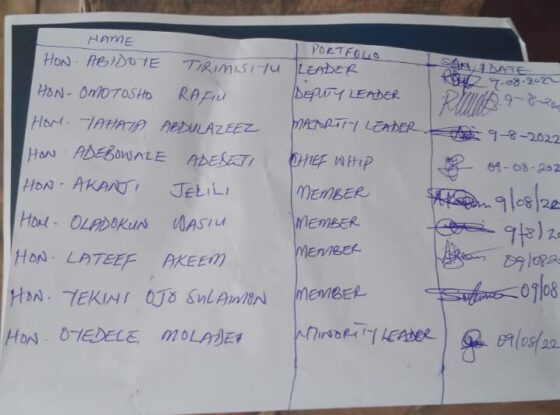 NAME PORTFOLIO SIGN & DATE
HON. ABIDOYE TIRIMISIYU LEADER 9.08.2022
HON. OMOTOSHO RAFIU DEPUTY LEADER 9-8-202
HON. YAHAYA ABDULAZEEZ MAJORITY LEADER 9-8-2022
HON. ADEBOWALE ADEBEJI CHIEF WHIP 09-08-202
HON. AKANJI JELILI MEMBER 9/08/20
HON. OLADOKUN WASIU MEMBER 9/8/20
HON. LATEEF AKEEM MEMBER 09/0820
HON. YEKINI OJO SULAIMON MEMBER 09/08
HON. OYEDELE MOLADEJ MINORITY LEADER 09/08/22